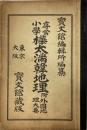 寶文館編輯所編纂
尋常
小學
樺太滿韓地理
外國地
理大要
東京
大阪
寶文館藏版